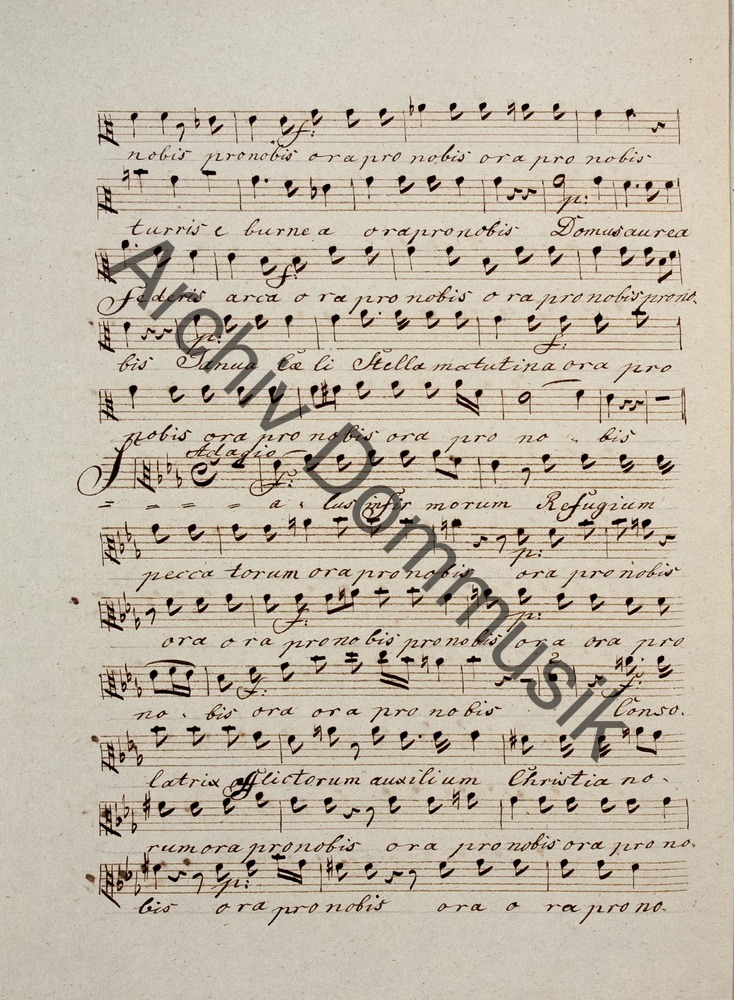 f:
nobis pronobis ora pro nobis ora pro nobis
p:
turris e burne a orapronobis Domus aurea
f:
Federis arca o ra pro nobis o ra pro nobis prono-
p: f:
bis Janua Cœ li Stella matutina ora pro
nobis ora pro nobis ora pro no - bis
Adagio
f:
S = = = = a - lus infir morum Refugium
p:
pecca torum ora pro nobis ora pro nobis
f: p:
ora o ra pro no bis pro nobis ora ora pro
f: 2 f:
no - bis ora ora pro nobis Conso-
latrix afflictorum auxilium Christia no-
rum ora pro nobis ora pro nobis ora pro no-
p:
bis ora pro nobis ora o ra pro no-
Archiv Dommusik